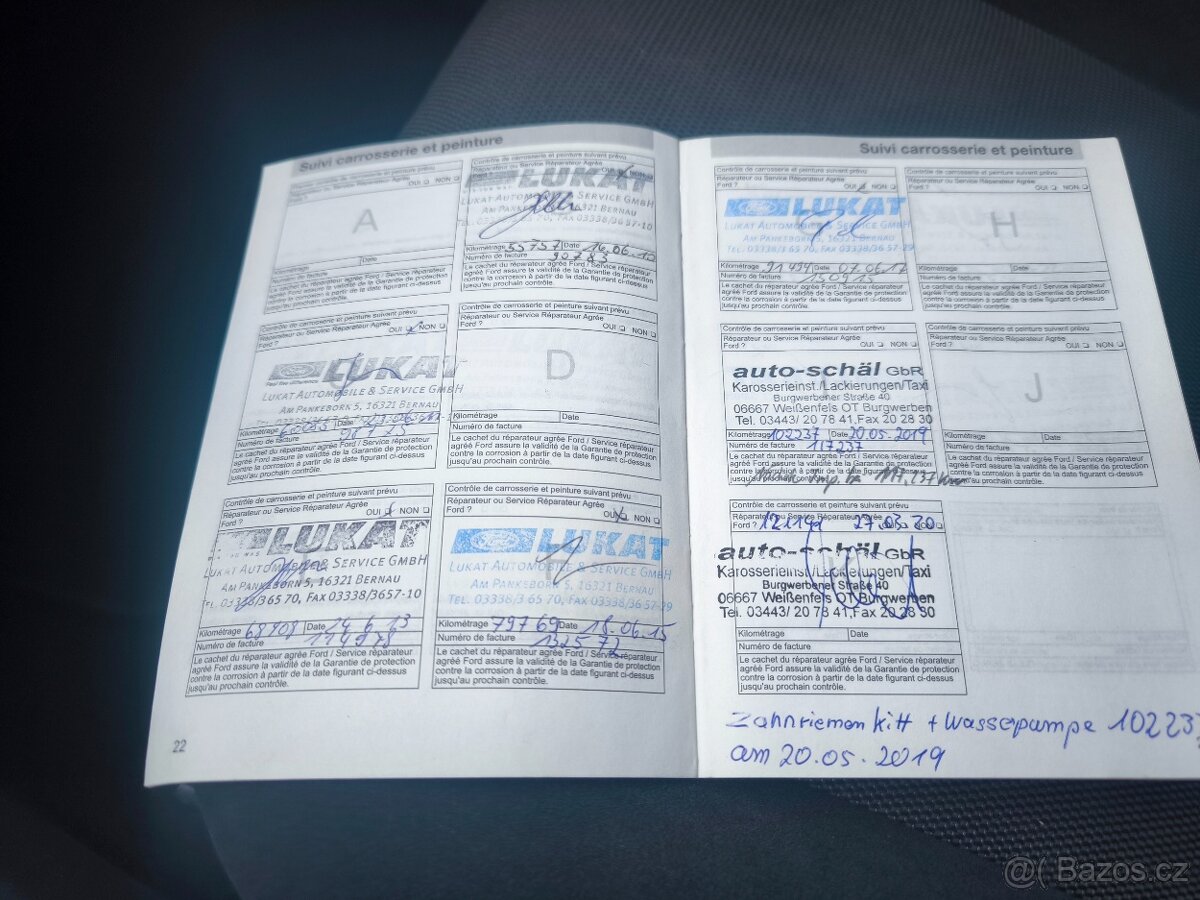 Suivi carrosserie et peinture
Contrôle de carrosserie et peinture suivant prévu
Réparateur ou Service Réparateur Agréé
Ford ?
OUI NON
A
Kilométrage
Date
Numéro de facture
Le cachet du réparateur agréé Ford / Service réparateur
agréé Ford assure la validité de la Garantie de protection
contre la corrosion à partir de la date figurant ci-dessus
jusqu'au prochain contrôle.
Contrôle de carrosserie et peinture suivant prévu
Réparateur ou Service Réparateur Agréé
LUKAT
LUKAT AUTOMOBILE & SERVICE GMBH
AM PANKEBORN 5, 16321 BERNAU
FAX 03338/36 57-10
Kilométrage 55757 Date
Numéro de facture 90783
Le cachet du réparateur agréé Ford / Service réparateur
agréé Ford assure la validité de la Garantie de protection
contre la corrosion à partir de la date figurant ci-dessus
jusqu'au prochain contrôle.
Contrôle de carrosserie et peinture suivant prévu
Réparateur ou Service Réparateur Agréé
Ford ?
OUI NON
LUKAT
LUKAT AUTOMOBILE & SERVICE GMBH
AM PANKEBORN 5, 16321 BERNAU
Kilométrage Date
Numéro de facture
Le cachet du réparateur agréé Ford / Service réparateur
agréé Ford assure la validité de la Garantie de protection
contre la corrosion à partir de la date figurant ci-dessus
jusqu'au prochain contrôle.
Contrôle de carrosserie et peinture suivant prévu
Réparateur ou Service Réparateur Agréé
Ford ?
OUI NON
D
Kilométrage
Date
Numéro de facture
Le cachet du réparateur agréé Ford / Service réparateur
agréé Ford assure la validité de la Garantie de protection
contre la corrosion à partir de la date figurant ci-dessus
jusqu'au prochain contrôle.
Contrôle de carrosserie et peinture suivant prévu
Réparateur ou Service Réparateur Agréé
Ford ?
OUI NON
LUKAT
LUKAT AUTOMOBILE & SERVICE GMBH
AM PANKEBORN 5, 16321 BERNAU
TEL. 03338/3 65 70, FAX 03338/3657-10
Kilométrage 68908 Date 14.6.13
Numéro de facture
Le cachet du réparateur agréé Ford / Service réparateur
agréé Ford assure la validité de la Garantie de protection
contre la corrosion à partir de la date figurant ci-dessus
jusqu'au prochain contrôle.
Contrôle de carrosserie et peinture suivant prévu
Réparateur ou Service Réparateur Agréé
Ford ?
OUI NON
Ford LUKAT
LUKAT AUTOMOBILE & SERVICE GMBH
AM PANKEBORN 5, 16321 BERNAU
TEL. 03338/3 65 70, FAX 03338/36 57-29
Kilométrage 79769 Date 18.06.15
Numéro de facture 132572
Le cachet du réparateur agréé Ford / Service réparateur
agréé Ford assure la validité de la Garantie de protection
contre la corrosion à partir de la date figurant ci-dessus
jusqu'au prochain contrôle.
22
Suivi carrosserie et peinture
Contrôle de carrosserie et peinture suivant prévu
Réparateur ou Service Réparateur Agréé
Ford ?
OUI NON
Ford LUKAT
LUKAT AUTOMOBILE & SERVICE GMBH
AM PANKEBORN 5, 16321 BERNAU
TEL. 03338/3 65 70, FAX 03338/36 57-29
Kilométrage 91494 Date 07.06.17
Numéro de facture 150915
Le cachet du réparateur agréé Ford / Service réparateur
agréé Ford assure la validité de la Garantie de protection
contre la corrosion à partir de la date figurant ci-dessus
jusqu'au prochain contrôle.
Contrôle de carrosserie et peinture suivant prévu
Réparateur ou Service Réparateur Agréé
Ford ?
OUI NON
H
Kilométrage
Date
Numéro de facture
Le cachet du réparateur agréé Ford / Service réparateur
agréé Ford assure la validité de la Garantie de protection
contre la corrosion à partir de la date figurant ci-dessus
jusqu'au prochain contrôle.
Contrôle de carrosserie et peinture suivant prévu
Réparateur ou Service Réparateur Agréé
Ford ?
OUI NON
auto-schäl GbR
Karosserieinst./Lackierungen/Taxi
Burgwerbener Straße 40
06667 Weißenfels OT Burgwerben
Tel. 03443/ 20 78 41,Fax 20 28 30
Kilométrage 102237 Date 20.05.2019
Numéro de facture 117237
Le cachet du réparateur agréé Ford / Service réparateur
agréé Ford assure la validité de la Garantie de protection
contre la corrosion à partir de la date figurant ci-dessus
jusqu'au prochain contrôle.
Contrôle de carrosserie et peinture suivant prévu
Réparateur ou Service Réparateur Agréé
Ford ?
OUI NON
J
Kilométrage
Date
Numéro de facture
Le cachet du réparateur agréé Ford / Service réparateur
agréé Ford assure la validité de la Garantie de protection
contre la corrosion à partir de la date figurant ci-dessus
jusqu'au prochain contrôle.
Contrôle de carrosserie et peinture suivant prévu
Réparateur ou Service Réparateur Agréé
Ford ? 27.05.20
auto-schäl GbR
Karosserieinst./Lackierungen/Taxi
Burgwerbener Straße 40
06667 Weißenfels OT Burgwerben
Tel. 03443/ 20 78 41,Fax 20 28 30
Kilométrage
Date
Numéro de facture
Le cachet du réparateur agréé Ford / Service réparateur
agréé Ford assure la validité de la Garantie de protection
contre la corrosion à partir de la date figurant ci-dessus
jusqu'au prochain contrôle.
Zahnriemen Kitt + Wasserpumpe 102237
am 20.05.2019
@( Bazos.cz